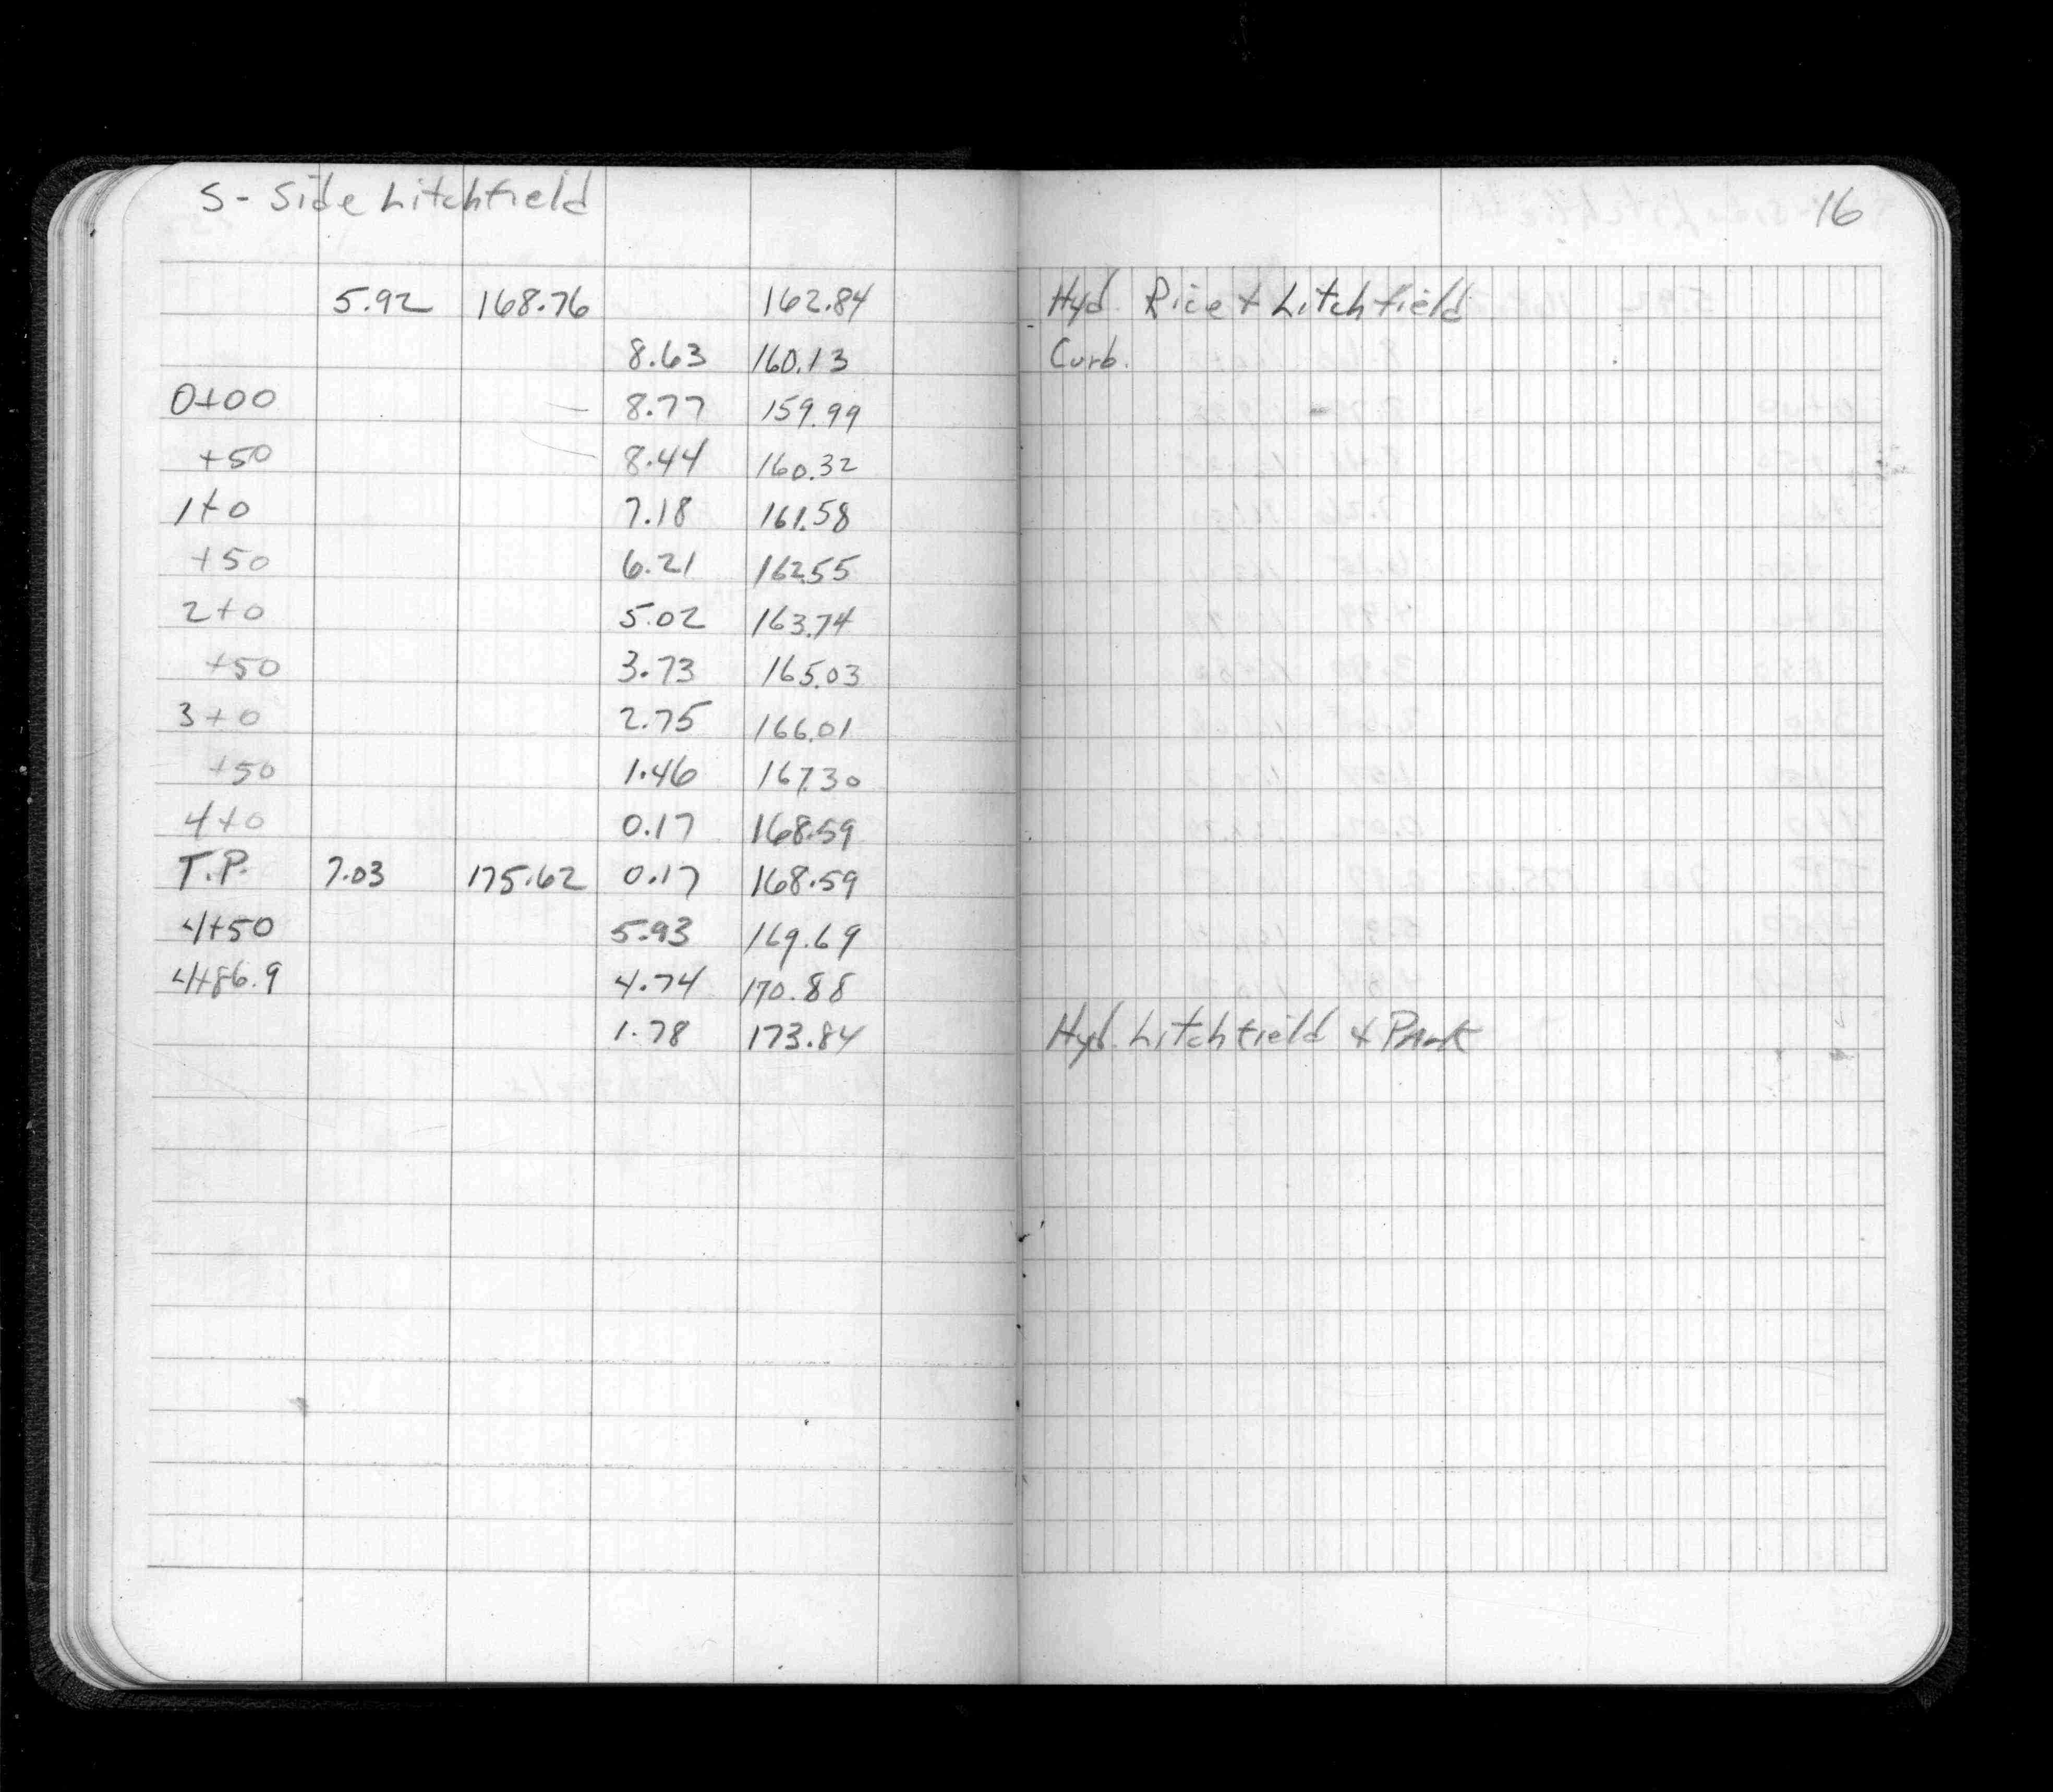 S - Side Litchfield
16
5.92 168.76 162.84 Hyd. Rice + Litchfield
8.63 160.13 Curb.
0+00 8.77 159.99
+50 8.44 160.32
1+0 7.18 161.58
+50 6.21 162.55
2+0 5.02 163.74
+50 3.73 165.03
3+0 2.75 166.01
+50 1.46 167.30
4+0 0.17 168.59
T.P. 7.03 175.62 0.17 168.59
4+50 5.93 169.69
4+86.9 4.74 170.88
1.78 173.84 Hyd. Litchfield + Park